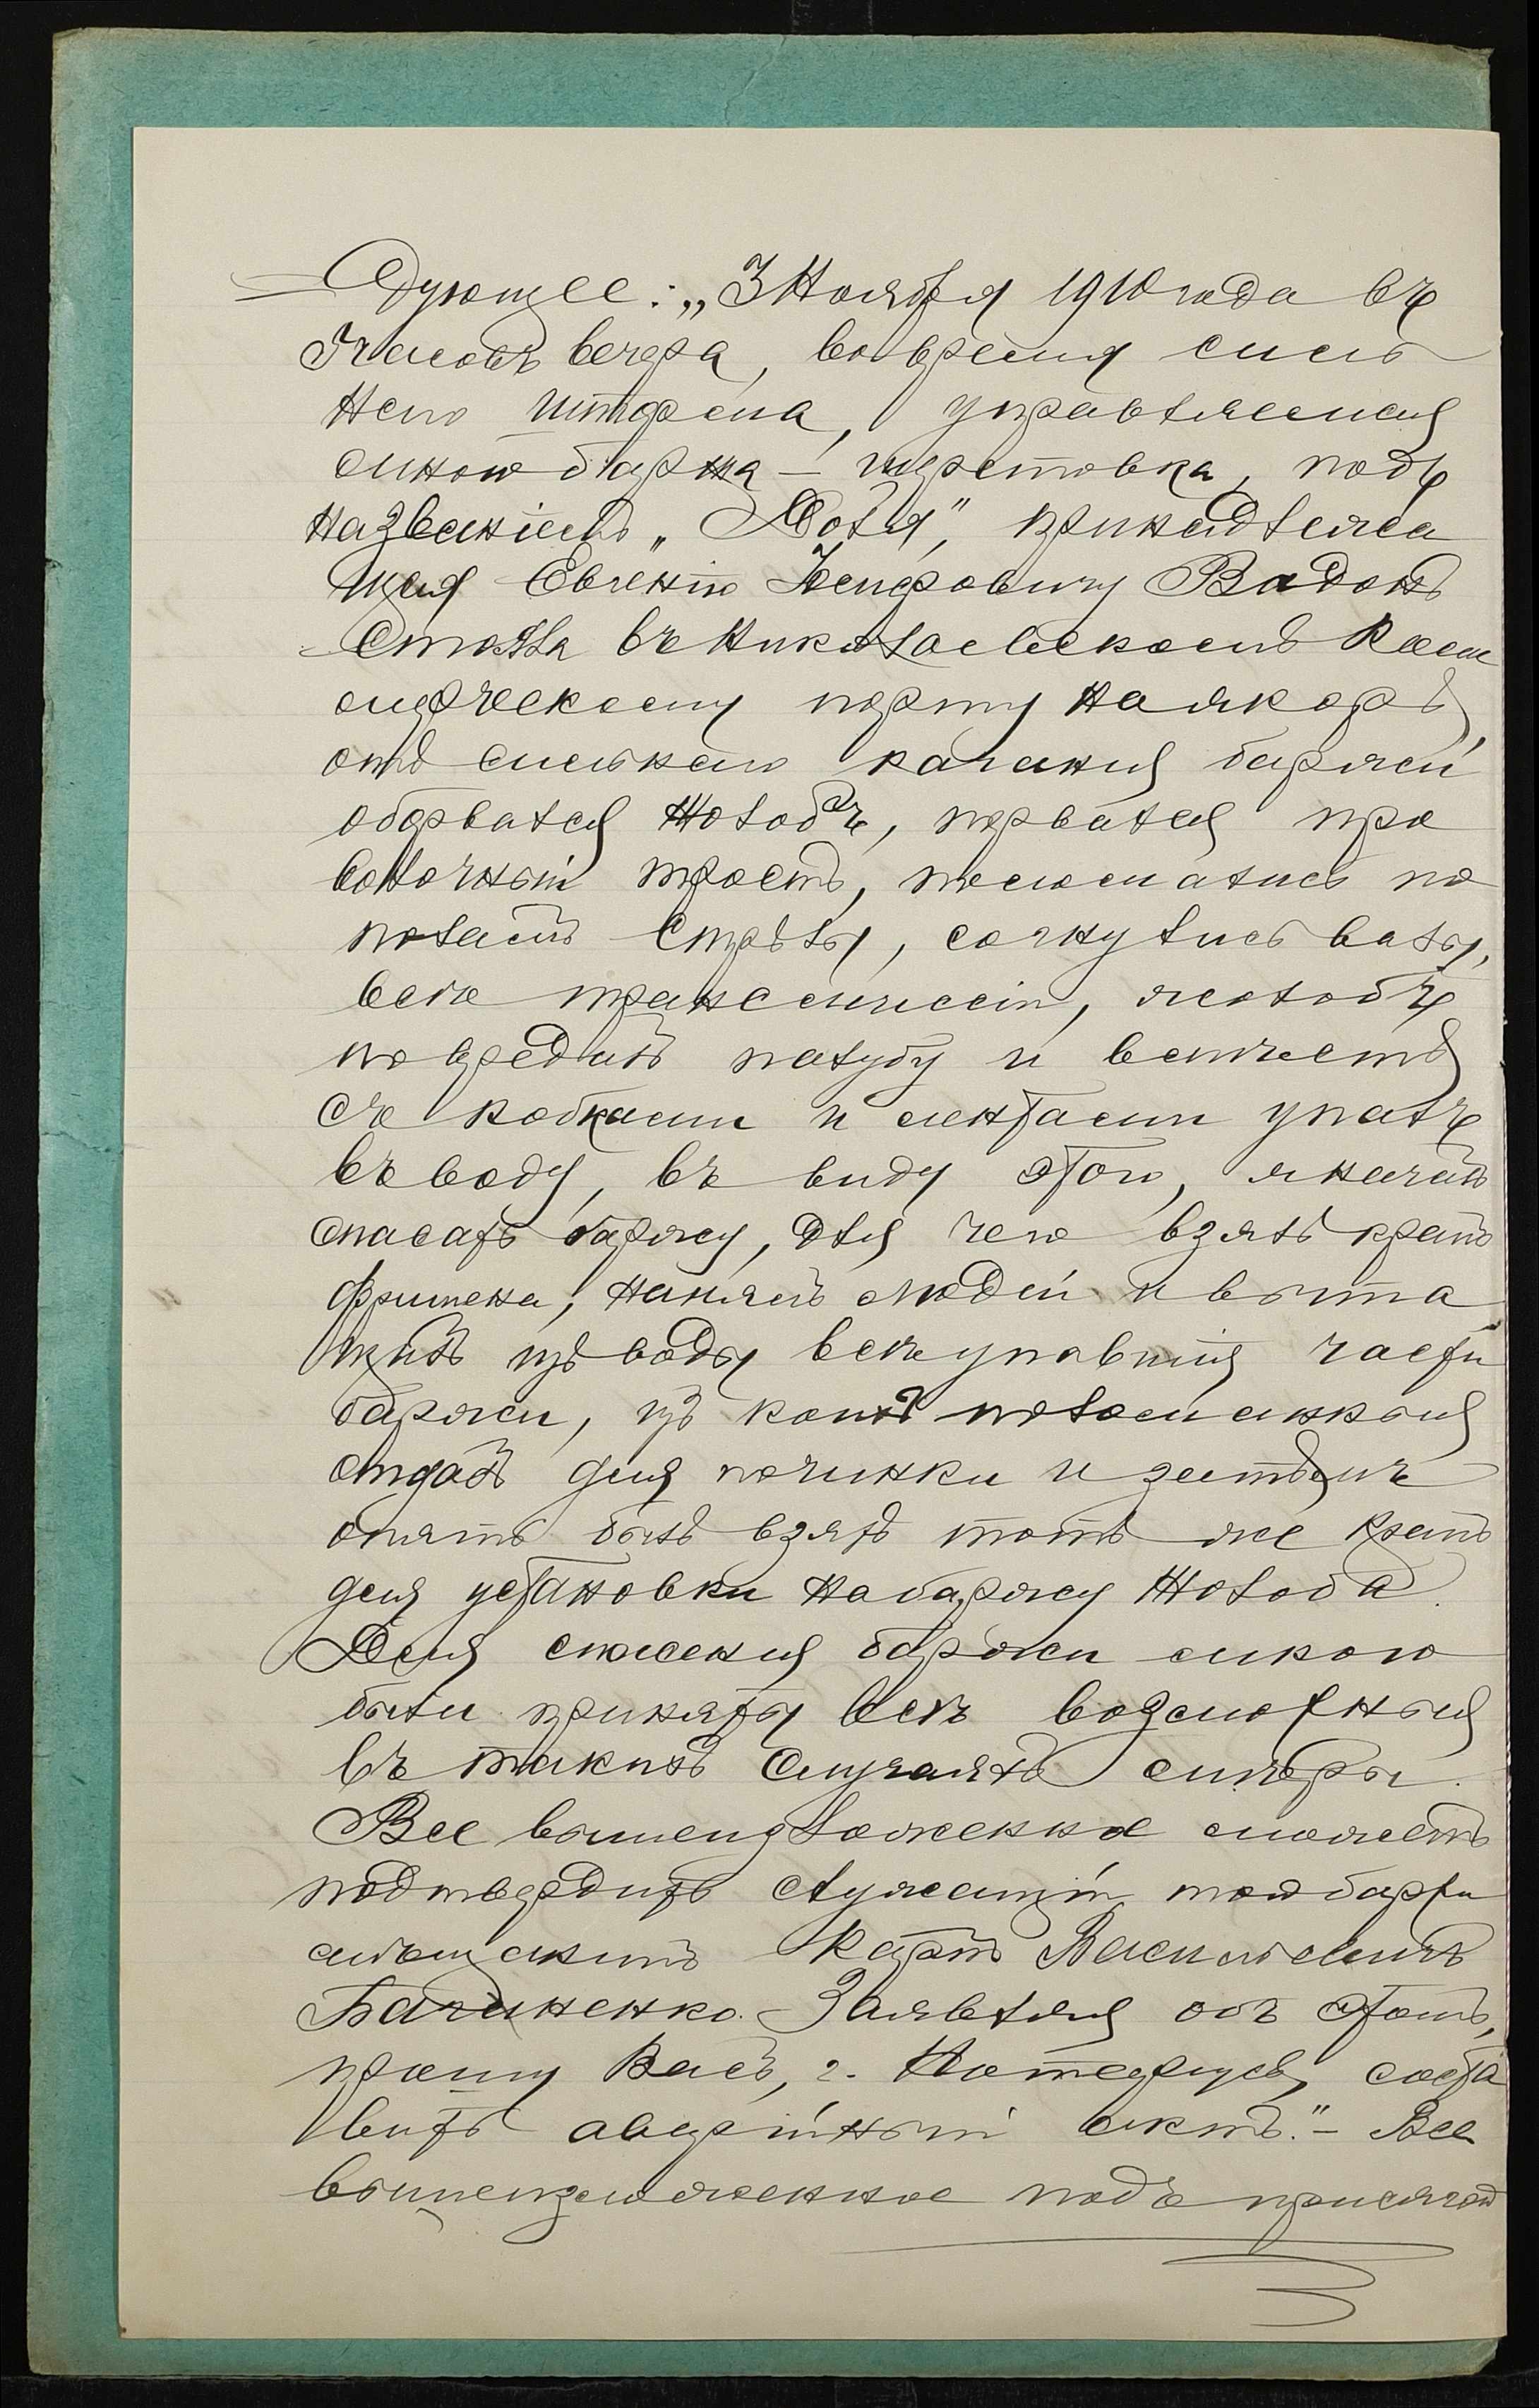 дующее: „3 Ноября 1910 года въ
часовъ вечера, во время силь
наго шторма, управляемая
мною баржа – шерстовка, подъ
названіемъ „Лоля“, принадлежа
щая Евгенію Петровичу Вадонъ
стояла въ Николаевскомъ Ком
мерческомъ порту на якорѣ,
отъ сильнаго качанія баржей
оборвался жолобъ, порвался про
волочный тросъ, поломались по
поламъ стрѣлы, согнулись валы,
всѣ трансмиссіи, жолобъ
повредилъ палубу и вмѣстѣ
съ ковками и лентами упалъ
въ воду, въ виду этого, я началъ
спасать баржу, для чего взялъ кранъ
Фришена, нанялъ людей и выта
щилъ изъ воды всѣ упавшія части
баржи, изъ коихъ поломанныя
отдалъ для починки и затѣмъ
опять былъ взятъ тотъ же кранъ
для установки на баржу жолоба.
Для спасенія баржи мною
были приняты всѣ возможныя
въ такихъ случаяхъ мѣры.
Все вышеизложенное можетъ
подтвердить служащій той баржи
мѣщанинъ Карпъ Васильевичъ
Багиненко. – Заявляя объ этомъ,
прошу Васъ, г. Нотаріусъ, соста
вить аварійный актъ.“ – Все
вышеизложенное подъ присягой